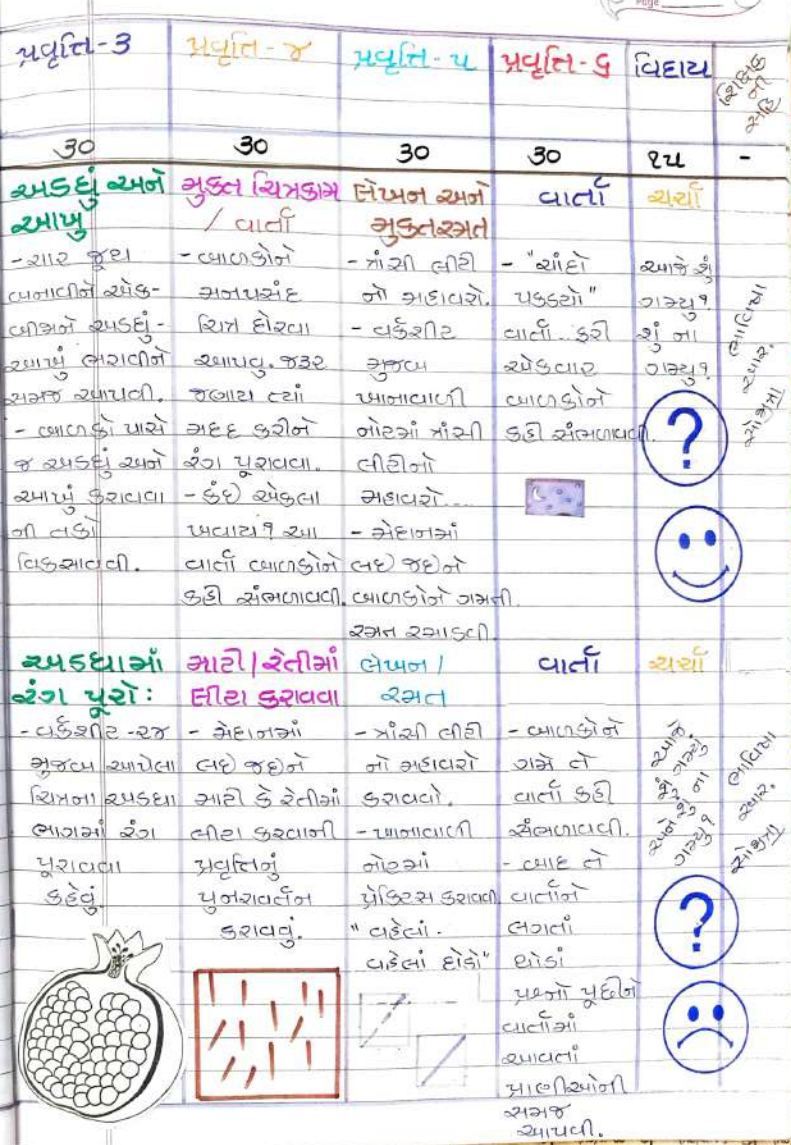 Page
પ્રવૃત્તિ-૩
પ્રવૃત્તિ-૪
પ્રવૃત્તિ-૫
પ્રવૃત્તિ-૬
વિદાય
શિક્ષક
ની
સહિ
30
30
30
30
૧૫
-
અડધું અને
આખુ
- ચાર જૂથ
બનાવીને એક-
બીજાને અડધું-
આખું ભરાવીને
સમજ આપવી.
- બાળકો પાસે
જ અડધું અને
આખું કરાવવા
ની તકો
વિકસાવવી.
મુક્ત ચિત્રકામ
/ વાર્તા
- બાળકોને
મનપસંદ
ચિત્ર દોરવા
આપવુ. જરૂર
જણાય ત્યાં
મદદ કરીને
રંગ પૂરાવવા.
- કંઇ એકલા
ખવાય? આ
વાર્તા બાળકોને
કહી સંભળાવવી.
લેખન અને
મુક્તરમત
- ત્રાંસી લીટી
નો મહાવરો.
- વર્કશીટ
મુજબ
ખાનાવાળી
નોટમાં ત્રાંસી
લીટીનો
મહાવરો....
- મેદાનમાં
લઇ જઇને
બાળકોને ગમતી
રમત રમાડવી.
વાર્તા
- "ચાંદો
પકડયો"
વાર્તા કરી
એકવાર
બાળકોને
કહી સંભળાવવી.
ચર્ચા
આજે શું
ગમ્યુ?
શું ના
ગમ્યુ?
?
અડધામાં
રંગ પૂરો:
- વર્કશીટ -૨૪
મુજબ આપેલા
ચિત્રના અડધા
ભાગમાં રંગ
પૂરાવવા
કહેવું.
માટી/રેતીમાં
લીટા કરાવવા
- મેદાનમાં
લઇ જઇને
માટી કે રેતીમાં
લીટા કરવાની
પ્રવૃત્તિનું
પુનરાવર્તન
કરાવવું.
લેખન /
રમત
- ત્રાંસી લીટી
નો મહાવરો
કરાવવો.
- ખાનાવાળી
નોટમાં
પ્રેક્ટિસ કરાવવી
"વહેલાં.
વહેલાં દોડો"
વાર્તા
- બાળકોને
ગમે તે
વાર્તા કહી
સંભળાવવી.
- બાદ તે
વાર્તાને
લગતાં
થોડાં
પ્રશ્નો પૂછીને
વાર્તામાં
આવતાં
પ્રાણીઓની
સમજ
આપવી.
ચર્ચા
આજે
શું ગમ્યું
અને શું ના
ગમ્યુ?
?